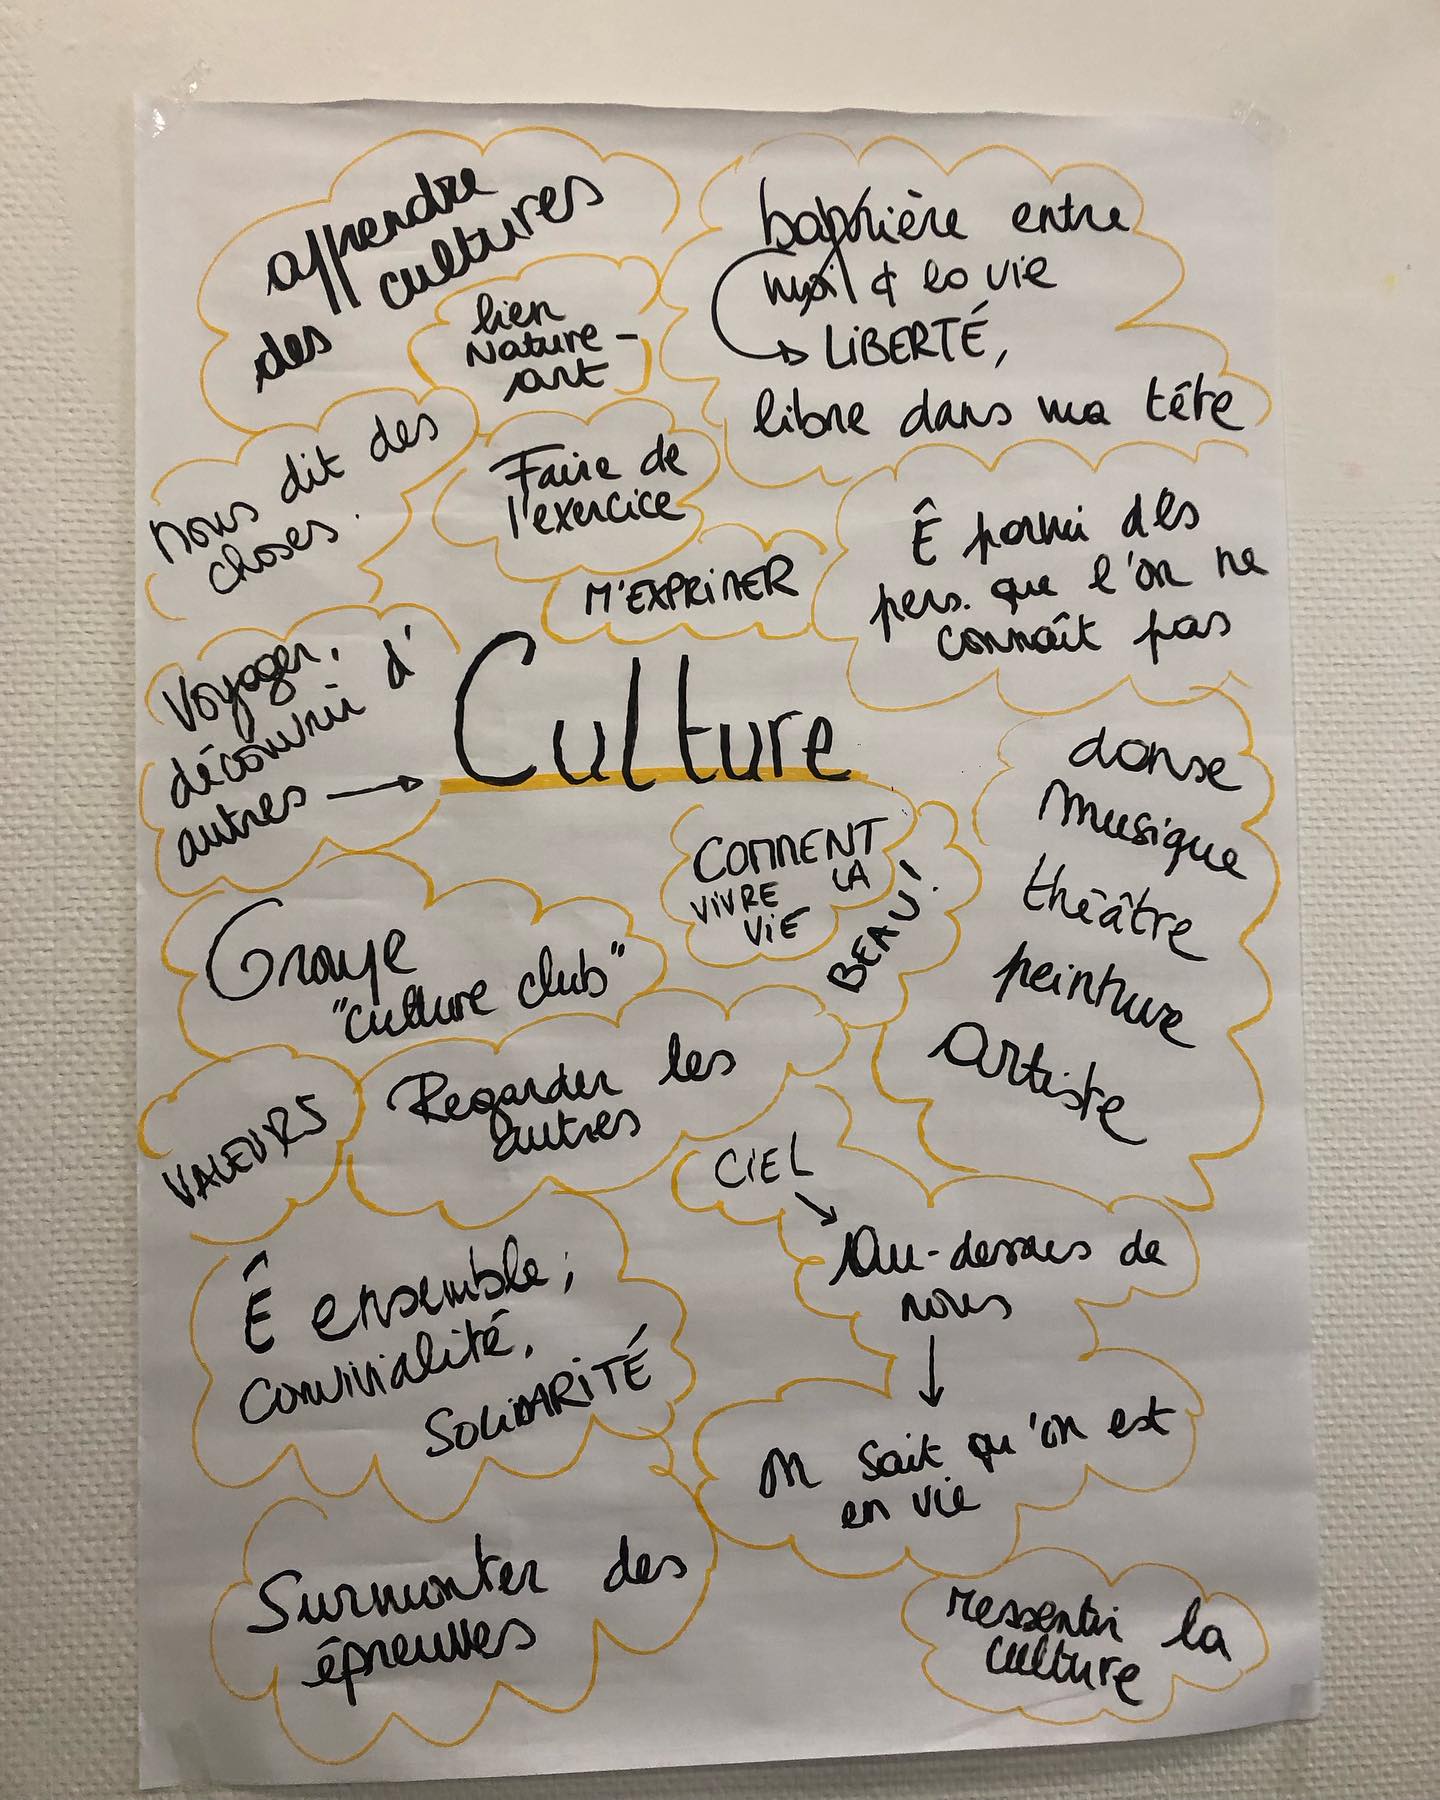 apprendre
des cultures
lien
Nature -
art
barrière entre
moi & la vie
LIBERTÉ,
libre dans ma tête
Nous dit des
choses.
Faire de
l'exercice
M'EXPRIMER
Ê parmi des
pers. que l'on ne
connaît pas
Voyager,
découvrir d'
autres
Culture
danse
musique
théâtre
peinture
Artiste
COMMENT
VIVRE LA
VIE
BEAU!
Groupe
"culture club"
VALEURS
Regarder les
autres
CIEL
Au-dessus de
nous
on sait qu'on est
en vie
Ê ensemble;
convivialité,
SOLIDARITÉ
Surmonter des
épreuves
ressentir la
culture